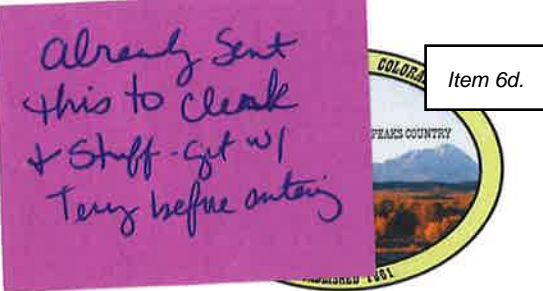 already sent
this to clerk
& Stuff - get w/
Terry before entering
Item 6d.
COLORA
PEAKS COUNTRY
1861